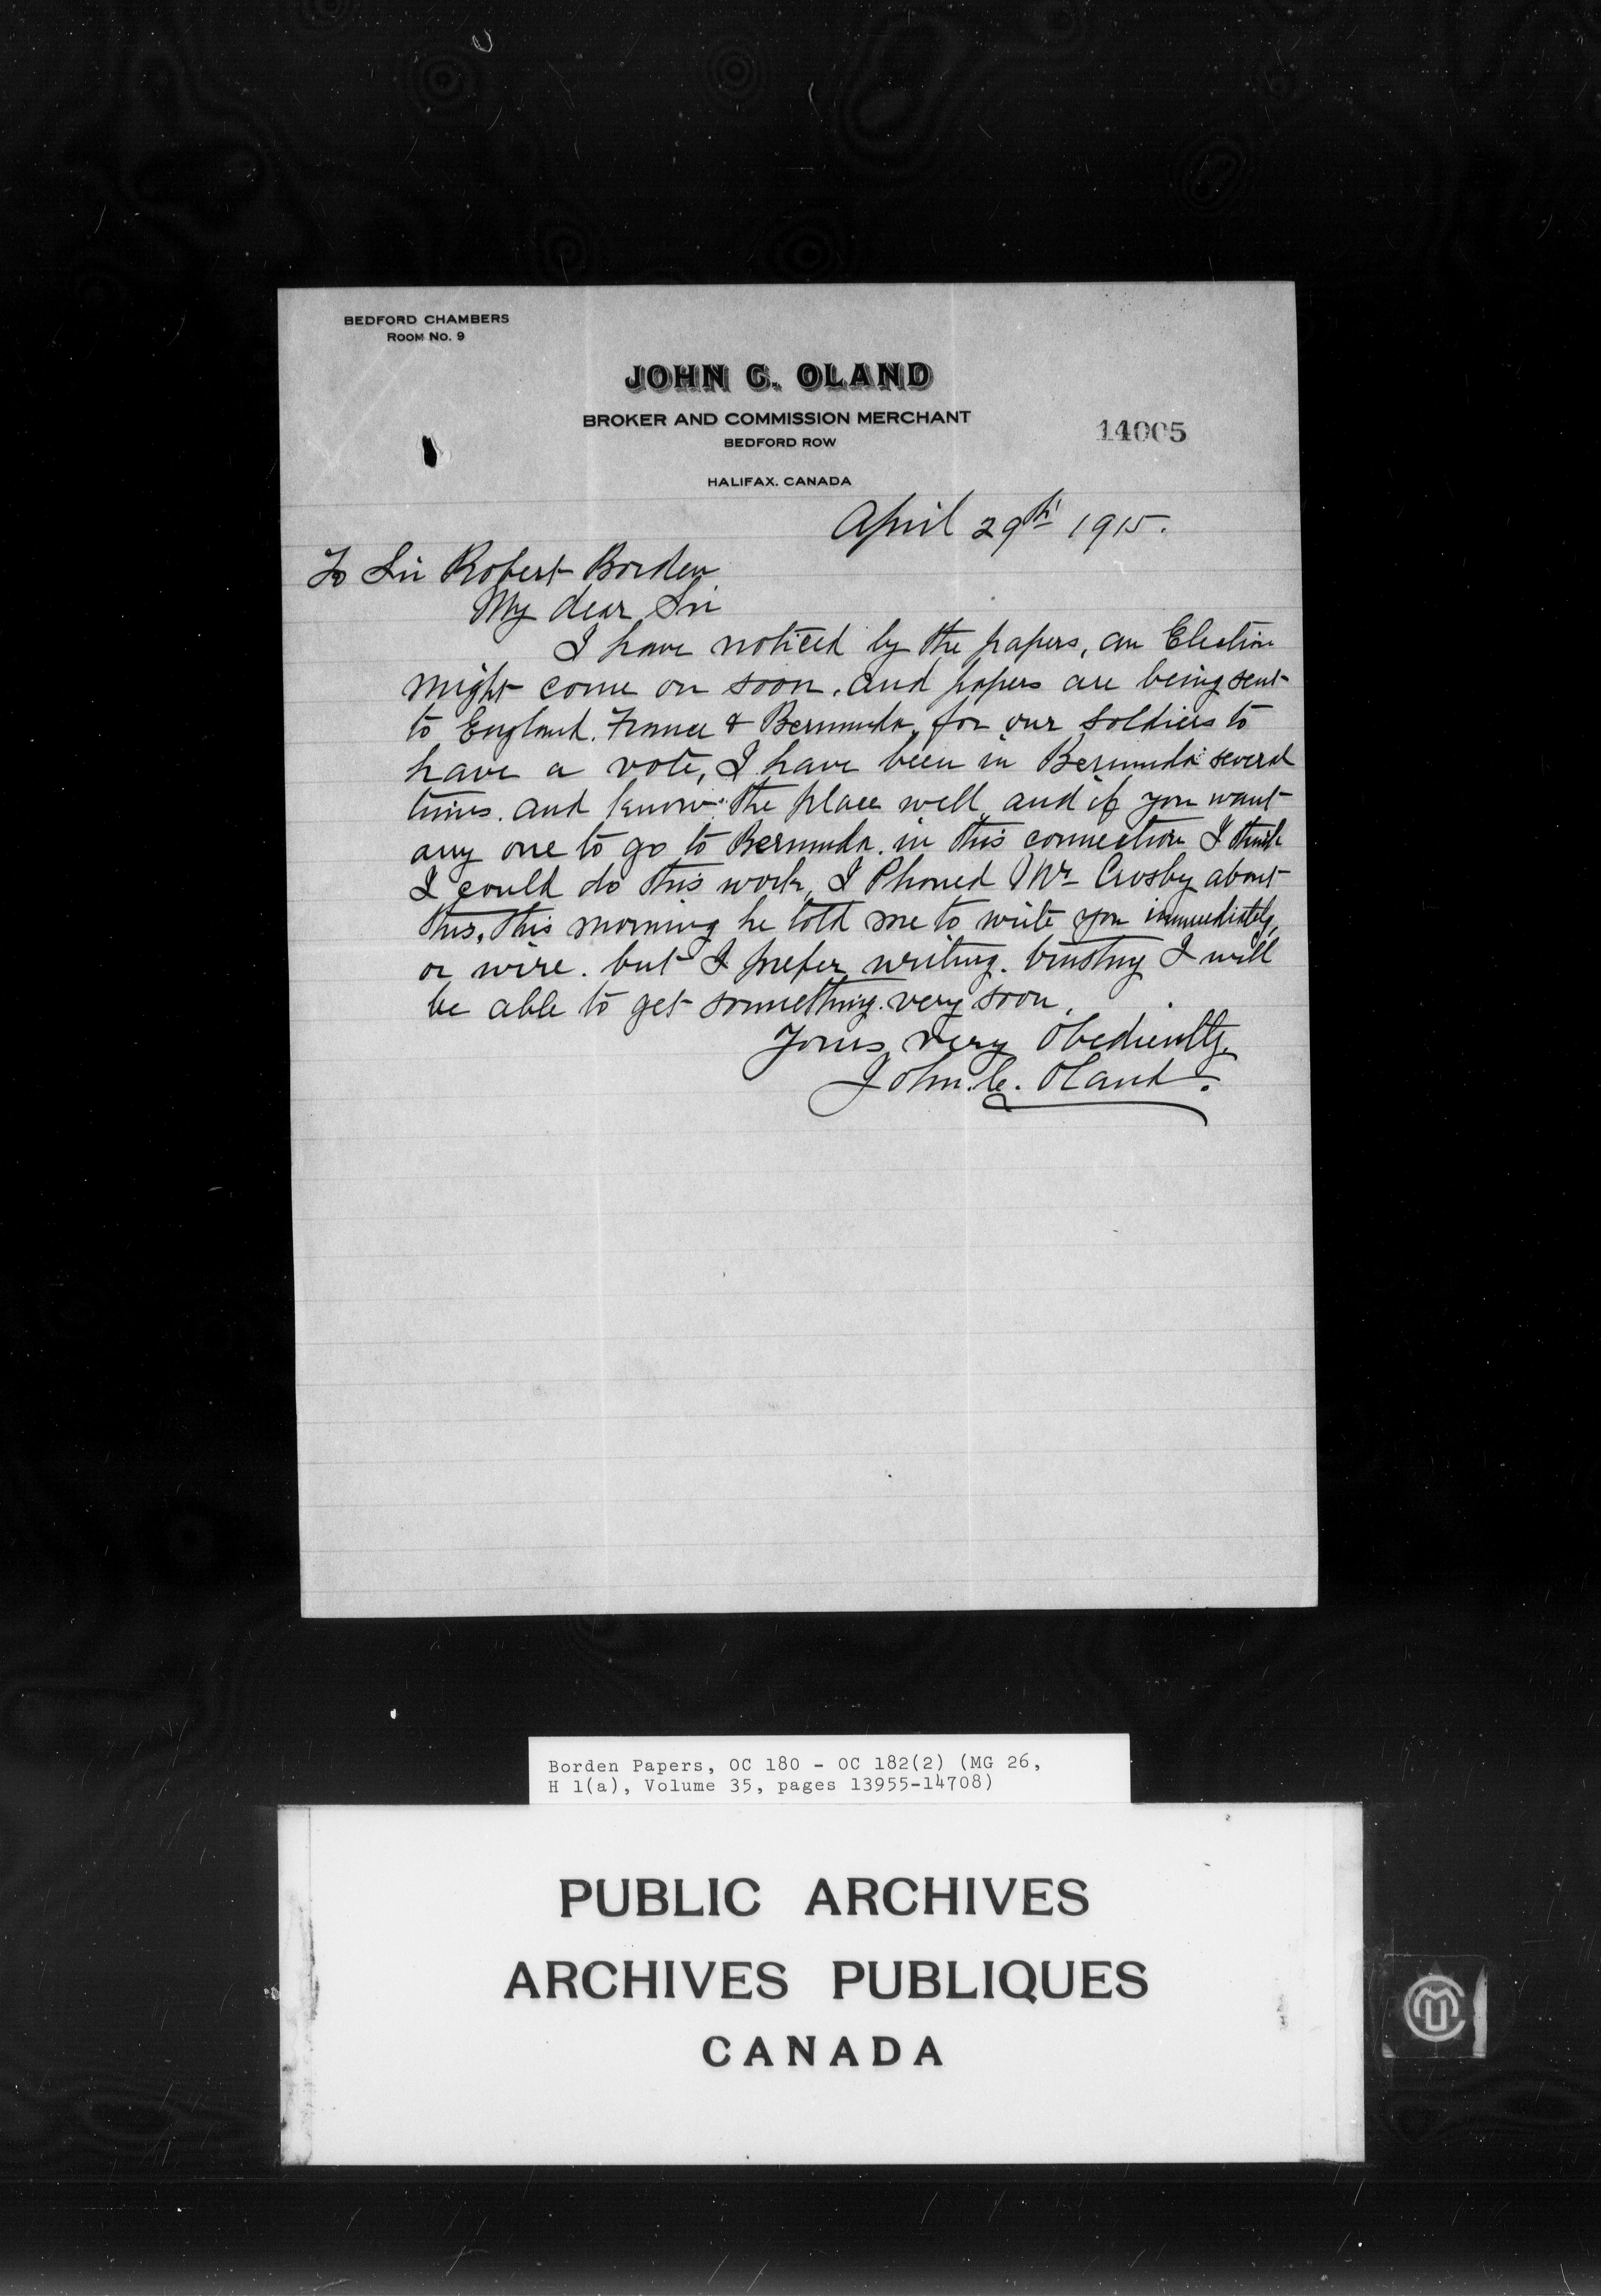 BEDFORD CHAMBERS
ROOM NO. 9
JOHN C. OLAND
BROKER AND COMMISSION MERCHANT
BEDFORD ROW
14005
HALIFAX. CANADA
April 29th 1915.
To Sir Robert Borden
My dear Sir
I have noticed by the papers, an Election
might come on soon. and papers are being sent
to England. France & Bermuda, for our Soldiers to
have a vote, I have been in Bermuda several
times. and know the place well, and if you want
any one to go to Bermuda. in this connection I think
I could do this work, I Phoned Mr Crosby about
this, this morning he told me to write you immediately,
or wire. but I prefer writing. trusting I will
be able to get something very soon.
Yours very Obediently,
John. C. Oland.
Borden Papers, OC 180 - OC 182(2) (MG 26,
H 1(a), Volume 35, pages 13955-14708)
PUBLIC ARCHIVES
ARCHIVES PUBLIQUES
CANADA